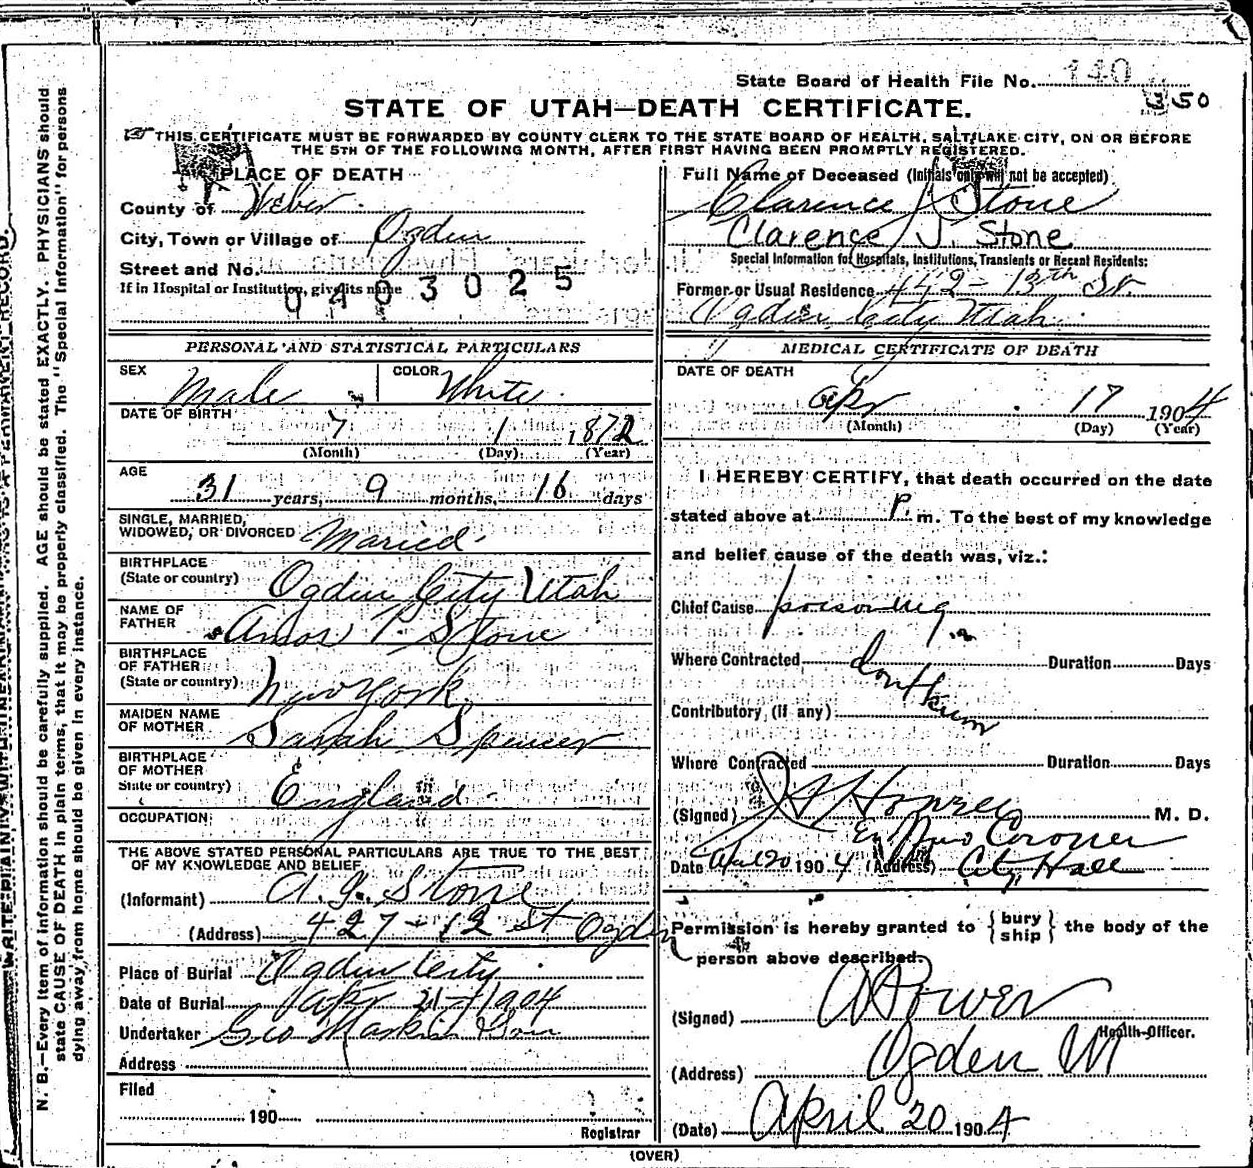 State Board of Health File No. 140
350
STATE OF UTAH—DEATH CERTIFICATE.
THIS CERTIFICATE MUST BE FORWARDED BY COUNTY CLERK TO THE STATE BOARD OF HEALTH, SALT LAKE CITY, ON OR BEFORE
THE 5TH OF THE FOLLOWING MONTH, AFTER FIRST HAVING BEEN PROMPTLY REGISTERED.
PLACE OF DEATH
County of Weber
City, Town or Village of Ogden
Street and No.
If in Hospital or Institution, give its name
0403025
PERSONAL AND STATISTICAL PARTICULARS
SEX Male COLOR White
DATE OF BIRTH
7 1 1872
(Month) (Day) (Year)
AGE
31 years, 9 months, 16 days
SINGLE, MARRIED,
WIDOWED, OR DIVORCED Maried
BIRTHPLACE
(State or country) Ogden City Utah
NAME OF
FATHER Amos P. Stone
BIRTHPLACE
OF FATHER
(State or country) New York
MAIDEN NAME
OF MOTHER Sarah Spencer
BIRTHPLACE
OF MOTHER
State or country) England
OCCUPATION
THE ABOVE STATED PERSONAL PARTICULARS ARE TRUE TO THE BEST
OF MY KNOWLEDGE AND BELIEF.
(Informant) A. G. Stone
(Address) 427-12 St Ogden
Place of Burial Ogden City
Date of Burial Apr 21-1904
Undertaker Geo
Address
Filed
190
Registrar
Full Name of Deceased (Initials only will not be accepted)
Clarence J Stone
Clarence J. Stone
Special Information for Hospitals, Institutions, Transients or Recent Residents:
Former or Usual Residence 442-13th St.
Ogden City Utah
MEDICAL CERTIFICATE OF DEATH
DATE OF DEATH
Apr 17 1904
(Month) (Day) (Year)
I HEREBY CERTIFY, that death occurred on the date
stated above at P. m. To the best of my knowledge
and belief cause of the death was, viz.:
Chief Cause poisoning
Where Contracted dont Duration Days
Contributory (if any)
Where Contracted Duration Days
(Signed) M. D.
Coroner
Date April 20 1904 (Address) City Hall
Permission is hereby granted to {bury
ship} the body of the
person above described.
(Signed) Power
Health Officer.
(Address) Ogden
(Date) April 20 1904
(OVER)
N. B.—Every item of information should be carefully supplied. AGE should be stated EXACTLY. PHYSICIANS should
state CAUSE OF DEATH in plain terms, that it may be properly classified. The "Special Information" for persons
dying away from home should be given in every instance.